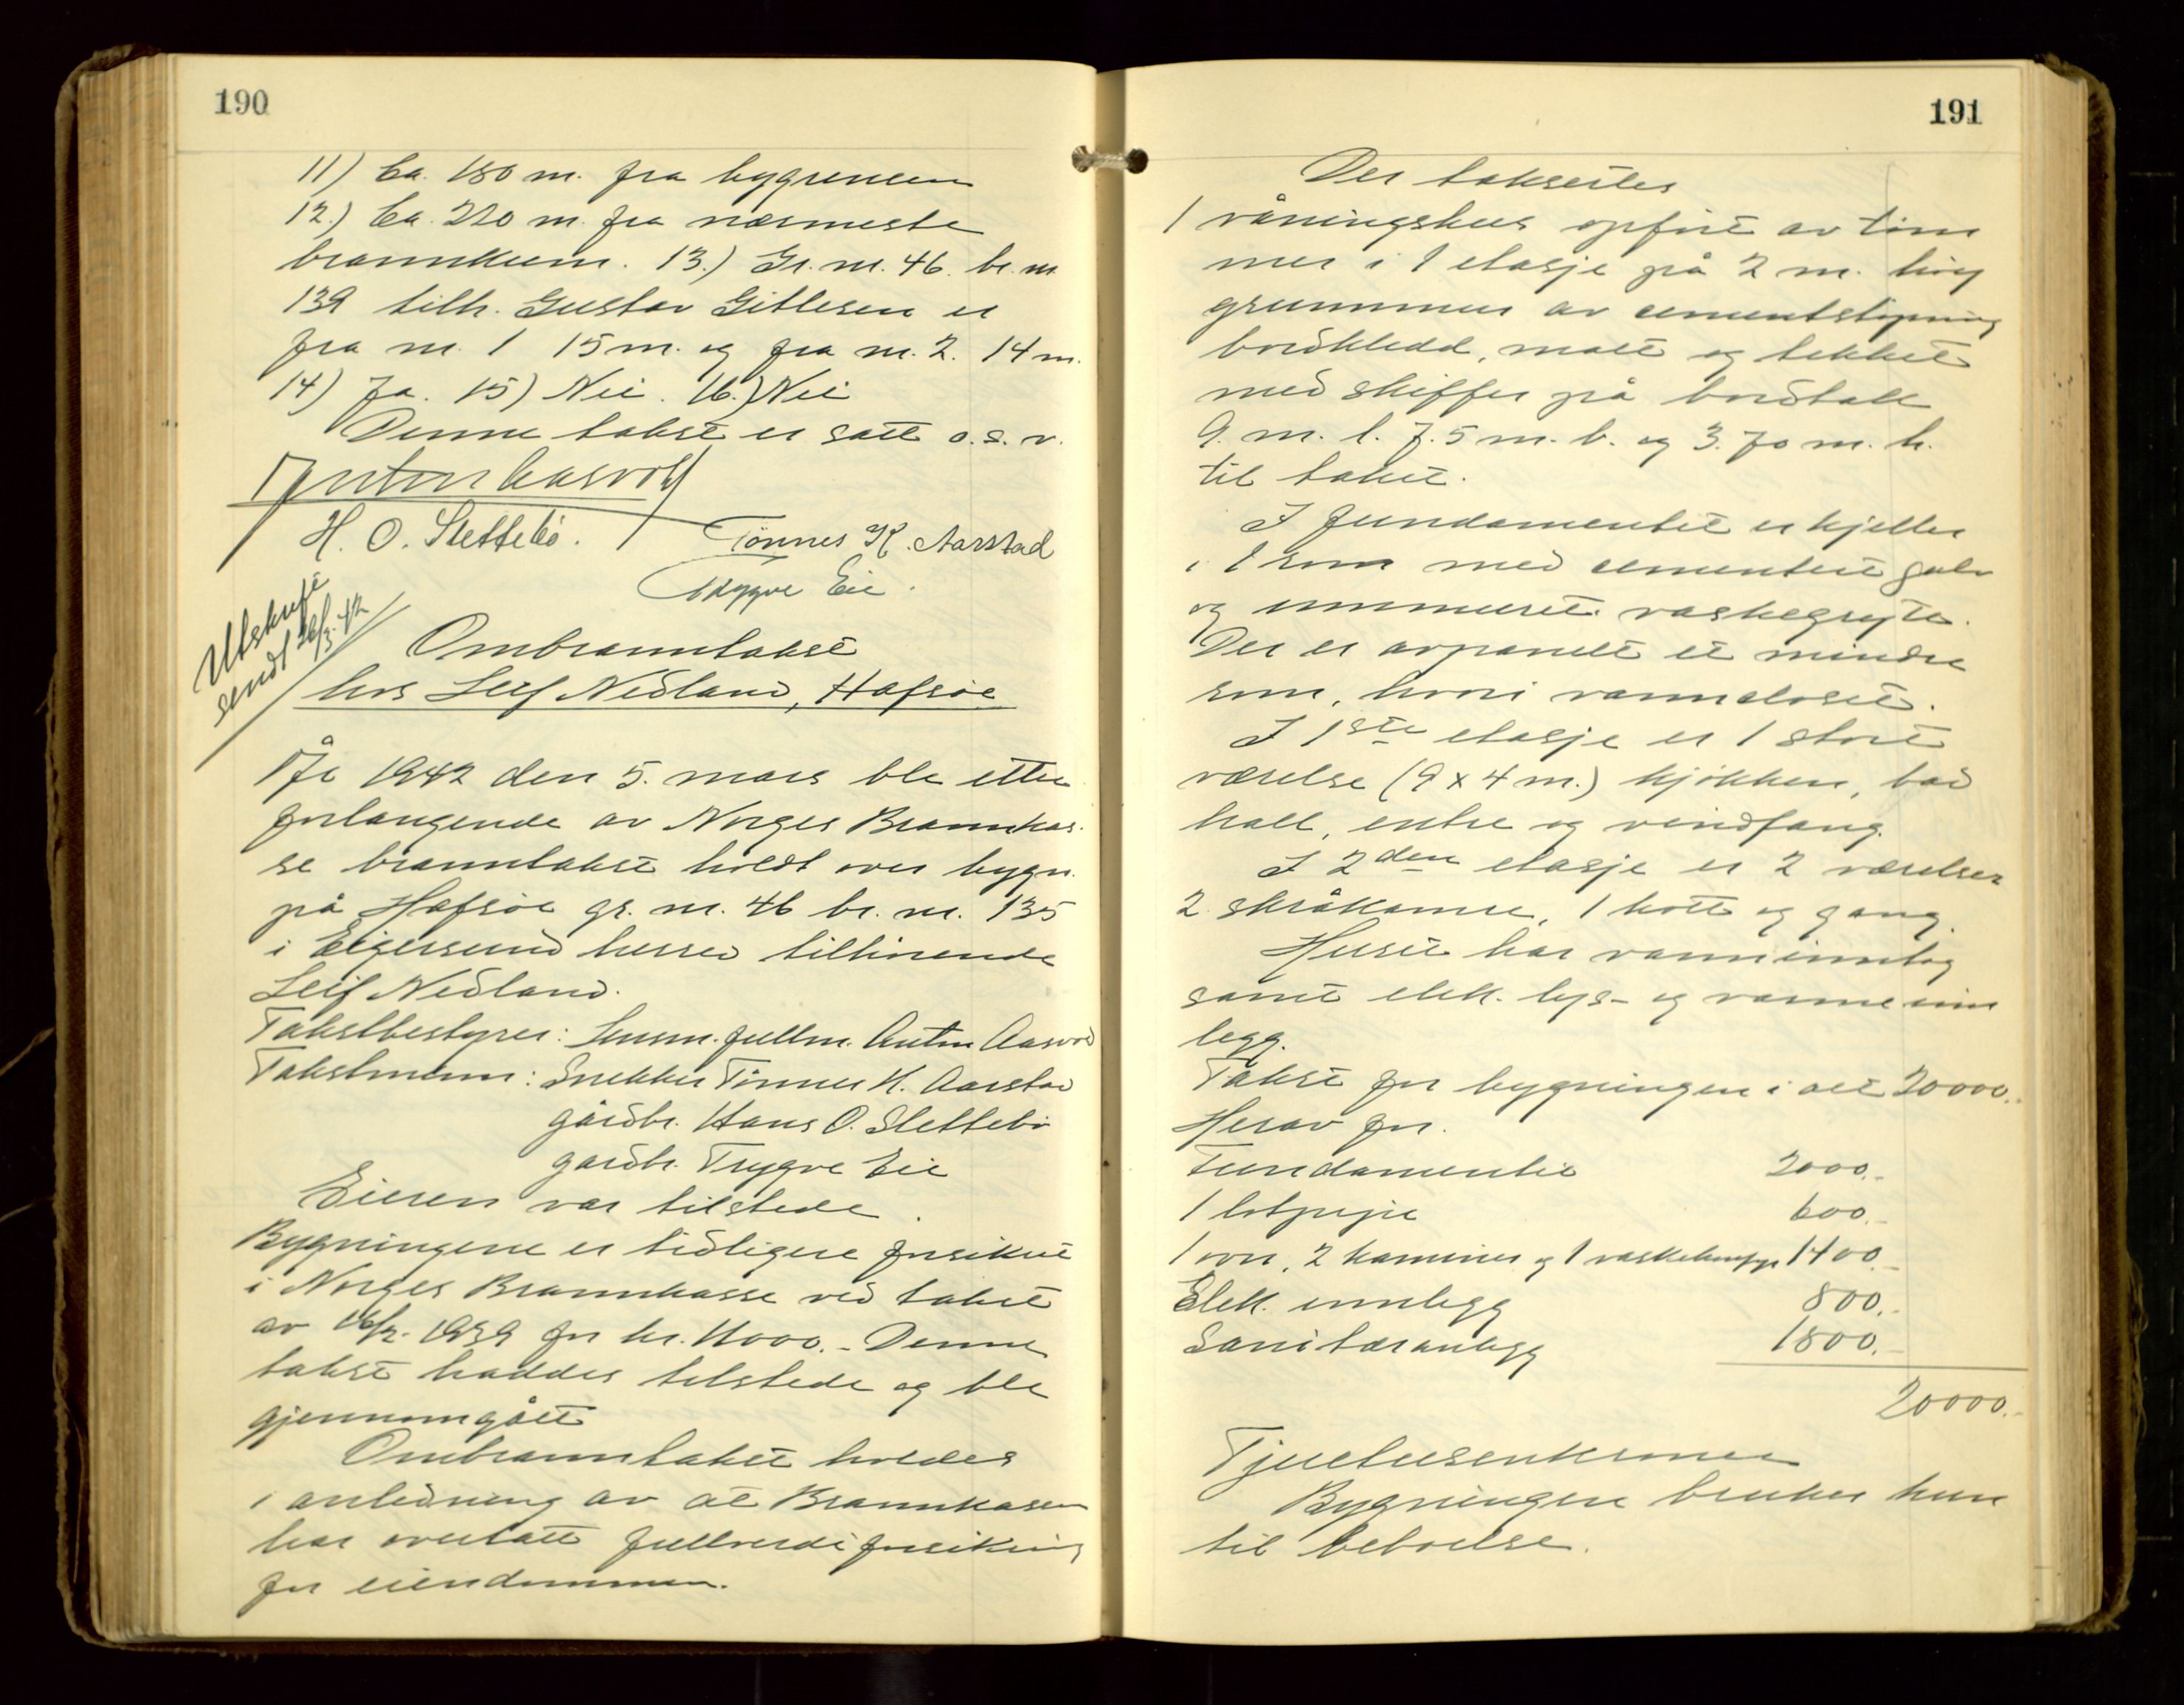 190
11) Ca. 180 m. fra bygrensen
12.) Ca. 220 m. fra nærmeste
brannkum. 13.) Gr. nr. 46 br. nr.
139 tilh. Gustav Gitlesen er
fra nr. 1 15 m. og fra nr. 2. 14 m.
14) Ja. 15) Nei. 16.) Nei
Denne takst er satt o.s.v.
Anton Aasvold
H. O. Slettebö. Tönnes K. Aarstad
Trygve Eie.
Utskrift
sendt 26/3.42
Ombranntakst
hos Leif Nedland, Hafsøe
År 1942 den 5. mars ble etter
forlangende av Norges Brannkas-
se branntakst holdt over bygn.
på Hafsøe gr. nr. 46 br. nr. 135
i Eigersund herred tilhørende
Leif Nedland.
Takstbestyrer: Lensm. fullm. Anton Aasvold
Takstmenn: Snekker Tönnes K. Aarstad
gårdbr. Hans O. Slettebö
gardbr. Trygve Eie
Eieren var tilstede.
Bygningene er tidligere forsikret
i Norges Brannkasse ved takst
av 16/2. 1939 for kr. 11000.- Denne
takst haddes tilstede og ble
gjennomgått
Ombranntakst holdes
i anledning av at Brannkassen
har overtatt fullverdiforsikring
for eiendommen.
191
Der takseres
1 våningshus opført av töm
mer i 1 etasje på 2 m. höy
grunnmur av cementstöpning
bordkledd, malt og tekket
med skiffer på bordtak
9. m. l. 7.5 m. b. og 3.70 m. h.
til taket.
I fundamentet er kjeller
i 1 rom med cementert gulv
og innmuret vaskegryte.
Der er avpanelt et mindre
rom, hvori vannkloset.
I 1ste etasje er 1 stort
værelse (9 x 4 m.) kjökken, bad
hall, entre og vindfang.
I 2den etasje er 2 værelser
2 skråkamre, 1 kott og gang.
Huset har vanninnlegg
samt elek. lys- og varme inn
legg.
Takst for bygningen i alt 20000.-
Herav for.
Fundamentet 2000.-
1 lotpipe 600.-
1 ovn, 2 kaminer og 1 1400.-
Elek. innlegg 800.-
Sanitæranlegg 1800.-
20000.-
Tjuetusenkroner
Bygningen brukes kun
til beboelse.